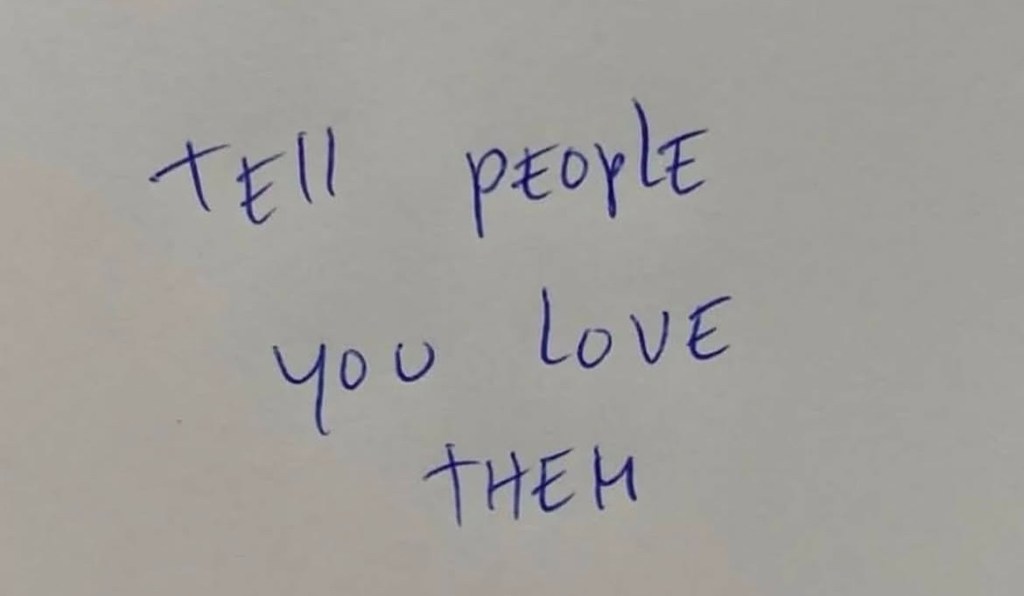 TEll pEOplE
you LOVE
THEM